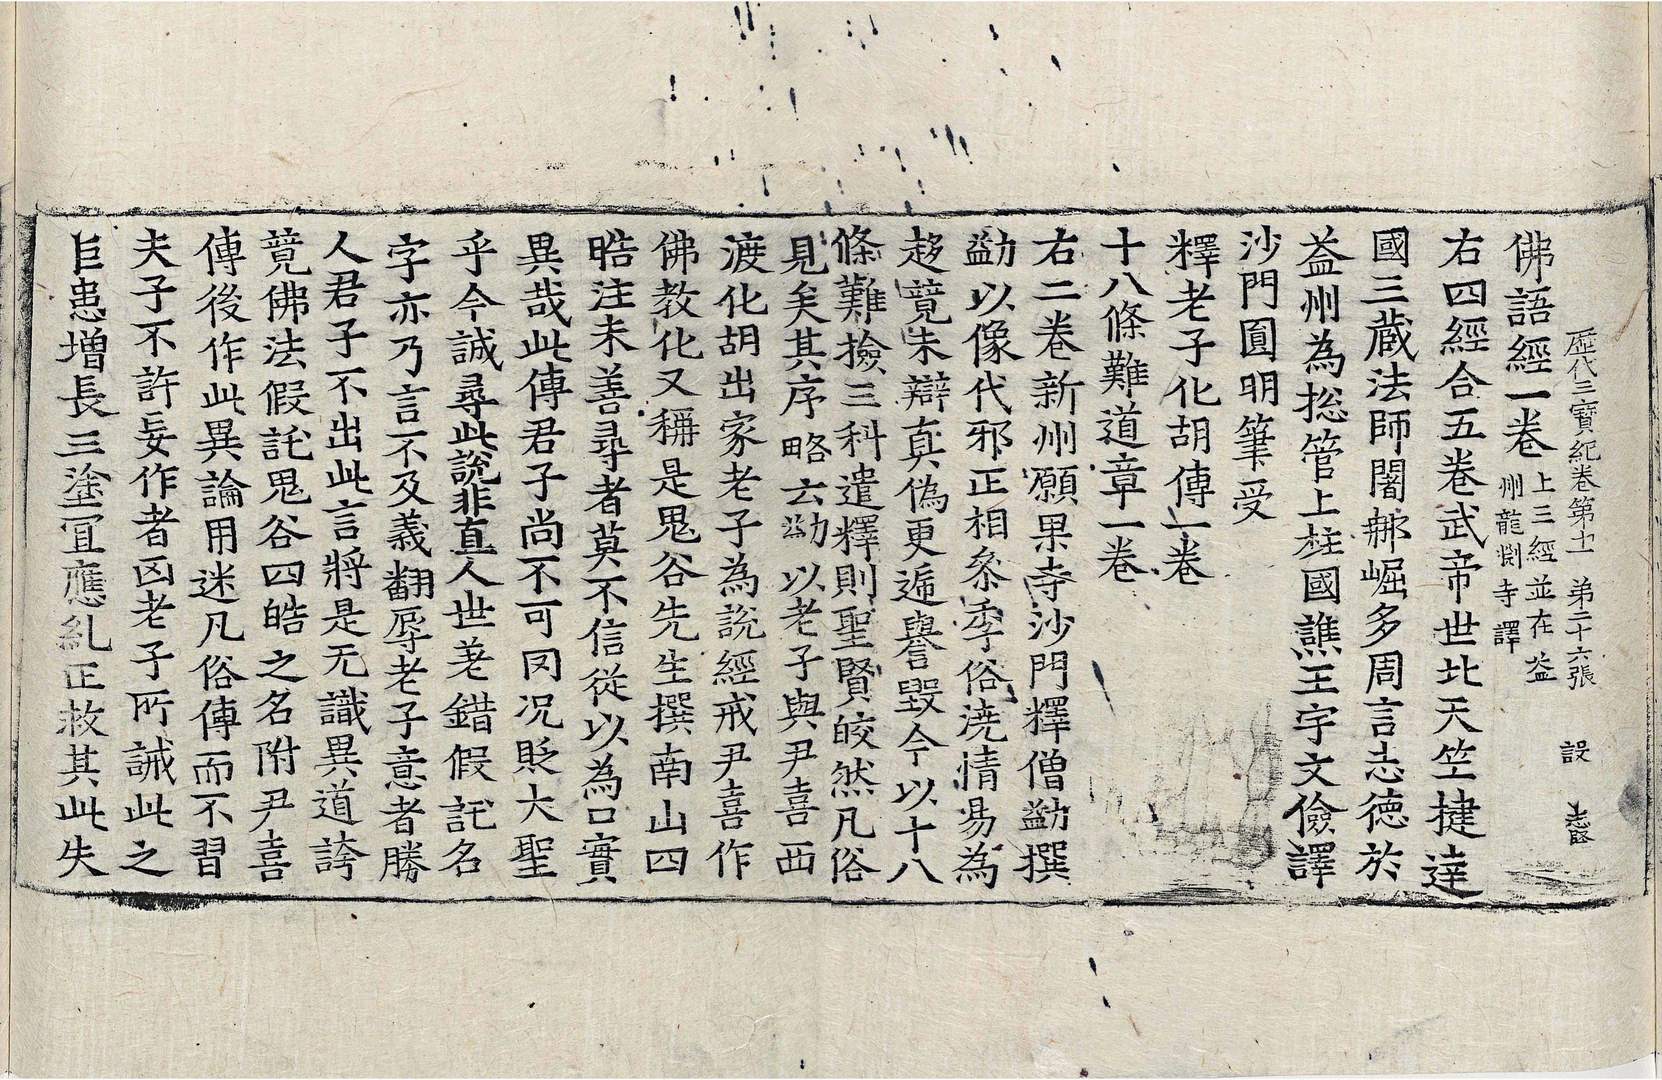 歷代三寶紀卷第十一 第二十六張 設 志堅
佛語經一卷 上三經並在益
州龍淵寺譯
右四經合五卷武帝世北天竺揵達
國三藏法師闍那崛多周言志德於
益州為揔管上柱國譙王宇文儉譯
沙門圓明筆受
釋老子化胡傳一卷
十八條難道章一卷
右二卷新州願果寺沙門釋僧勔撰
勔以像代邪正相叅季俗澆情易為
趍競未辯真偽更遞譽毀今以十八
條難撿三科遣釋則聖賢皎然凡俗
見矣其序略云勔以老子與尹喜西
渡化胡出家老子為說經戒尹喜作
佛教化又稱是鬼谷先生撰南山四
晧注未善尋者莫不信從以為口實
異哉此傳君子尚不可罔况貶大聖
乎今誠尋此說非直人世差錯假託名
字亦乃言不及義翻辱老子意者勝
人君子不出此言將是无識異道誇
競佛法假託鬼谷四晧之名附尹喜
傳後作此異論用迷凡俗傳而不習
夫子不許妄作者凶老子所誡此之
巨患增長三塗宜應糺正救其此失